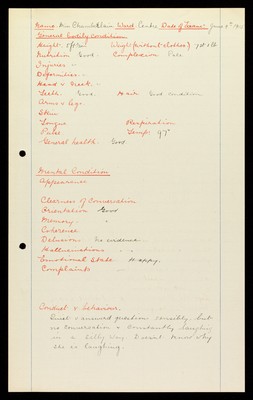 Name. Miss Chamberlain Ward Centre Date of Exam:- June
General Bodily Condition
Height. Weight (without clothes) 7st
Nutrition Good. Complexion Pale
Injuries -
Deformities -
Head & Neck. -
Teeth. Good. Hair Good condition
Arms & legs.
Skin
Tongue Respiration
Pulse Temp. 97°
General health. Good
Mental Condition
Appearance
Clearness of Conversation
Orientation Good
Memory. "
Coherence
Delusions No evidence
Hallucinations " "
Emotional State Happy.
Complaints -
Conduct & behaviour.
Quiet & answered questions sensibly but
no conversation & constantly laughing
in a silly way. Doesn't know why
she is laughing.